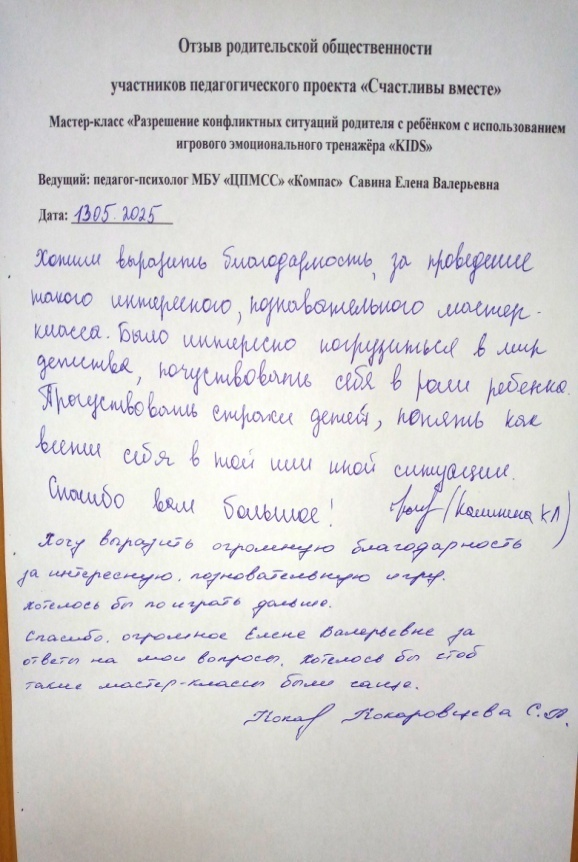 Отзыв родительской общественности
участников педагогического проекта «Счастливы вместе»
Мастер-класс «Разрешение конфликтных ситуаций родителя с ребёнком с использованием
игрового эмоционального тренажёра «KIDS»
Ведущий: педагог-психолог МБУ «ЦПМСС» «Компас» Савина Елена Валерьевна
Дата: 13.05.2025
Хотим выразить благодарность, за проведение
такого интересного, познавательного мастер-
класса. Было интересно погрузиться в мир
детства, почуствовать себя в роли ребенка.
Прочуствовать страхи детей, понять как
вести себя в той или иной ситуации.
Спасибо вам большое! /Калинина КЛ/
Хочу выразить огромную благодарность
за интересную, позновательную игру.
Хотелось бы поиграть дальше.
Спасибо, огромное Елене Валерьевне за
ответы на мои вопросы, хотелось бы чтоб
такие мастер-классы были чаще.
С.А.